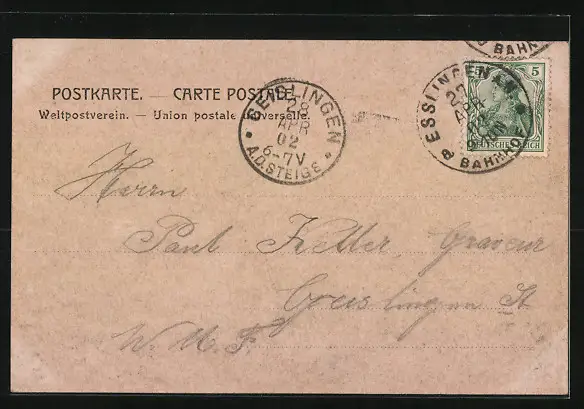 BAHNHOF
POSTKARTE. — CARTE POSTALE.
Weltpostverein. — Union postale universelle.
GEISLINGEN
28
APR
02
6-7V
A.D. STEIGE
ESSLINGEN A.N.
27
APR
02
BAHNHOF
5
DEUTSCHES REICH
Herrn
Paul Keller, Graveur
Geislingen St
W. M. F.